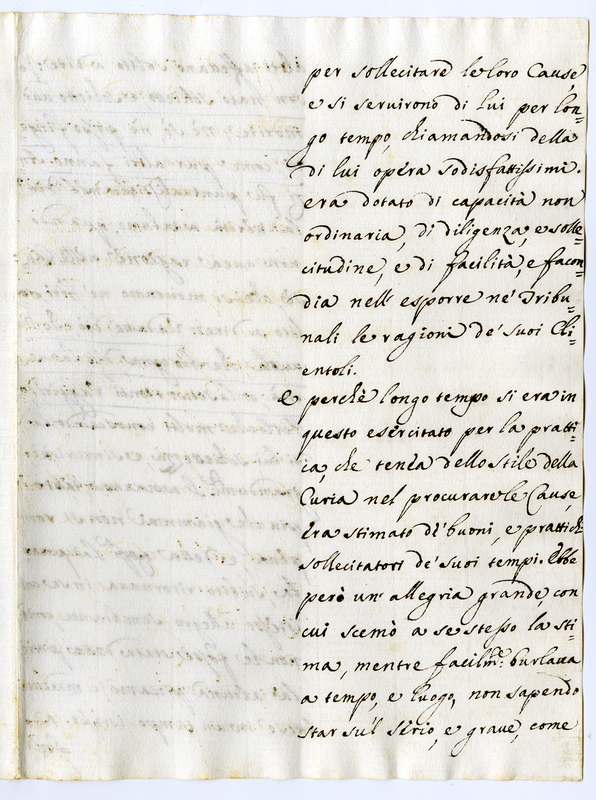 per sollecitare le loro Cause,
e si servirono di lui per lon=
go tempo, chiamandosi della
di lui opera sodisfattissimi.
era dotato di capacità non
ordinaria, di diligenza, e solle=
citudine, e di facilità, e facon=
dia nell' esporre ne' Tribu=
nali le ragioni de' suoi Cli=
entoli.
e perchè longo tempo si era in
questo esercitato per la pratti=
ca, che tenea dello stile della
Curia nel procurare le Cause,
era stimato de' buoni, e prattichi
sollecitatori de' suoi tempi. Ebbe
però un' allegria grande, con
cui scemò a se stesso la sti=
ma, mentre facilm.te burlava
a tempo, e luogo, non sapendo
star su'l serio, e grave, come